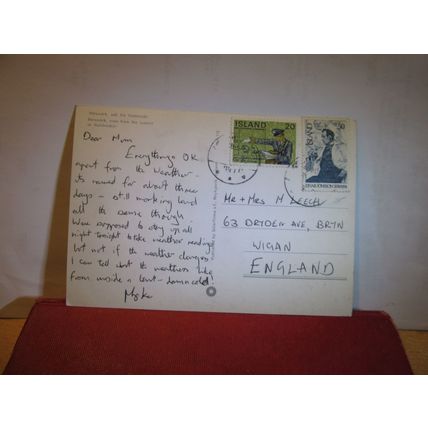 Dear Mum
Everythings O.K.
apart from the weather -
its rained for about three
days - still working hard
all the same though.
Were supposed to stay up all
night tonight to take weather readings
but not if the weather changes
I can tell what the weathers like
from inside a tent - damn cold!
Mike
ISLAND
20
ISLAND
50
Mr + Mrs M LEECH
63 DRYDEN AVE, BRYN
WIGAN
ENGLAND